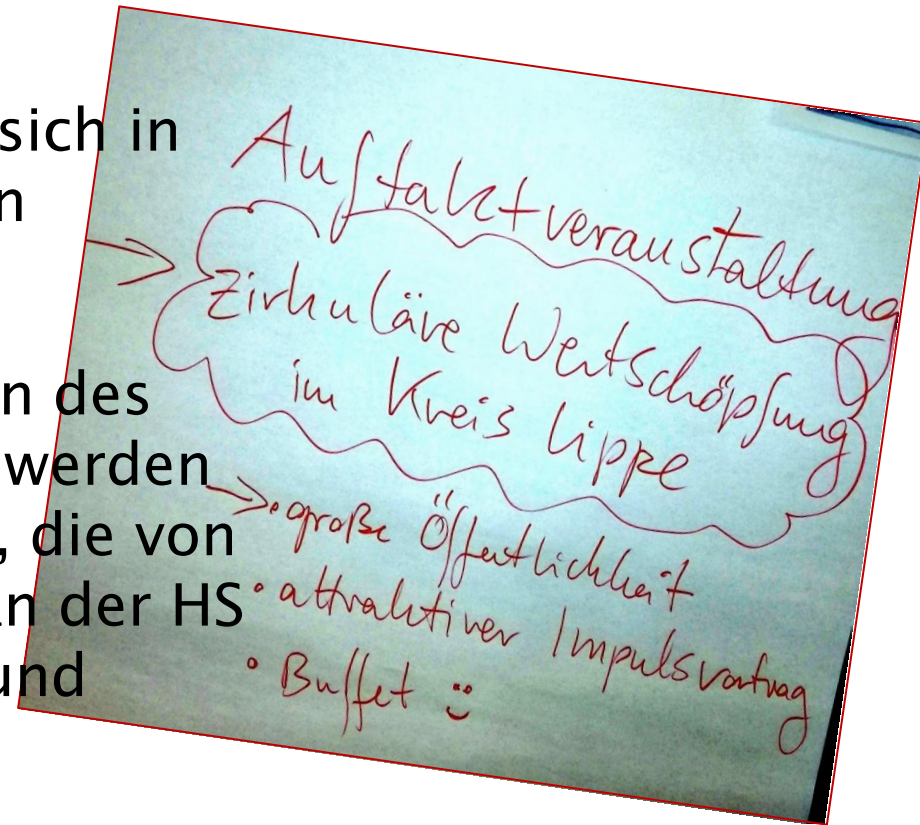 sich in
n
n des
werden
, die von
an der HS
und
Auftaktveranstaltung
Zirkuläre Wertschöpfung
im Kreis Lippe
→ • große Öffentlichkeit
• attraktiver Impulsvortrag
• Buffet :)